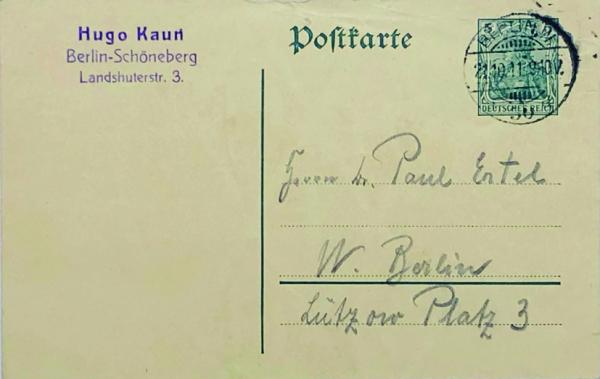 Hugo Kaun
Berlin-Schöneberg
Landshuterstr. 3.
Postkarte
BERLIN W.
21.10.11.9-10V.
30
DEUTSCHES REICH
Herrn Dr. Paul Ertel
W. Berlin
Lützow Platz 3